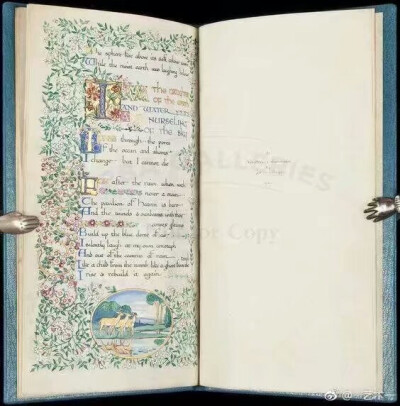 The sphere fire above its soft colours wove
While the moist earth was laughing below
I AM THE DAUGHTER
OF THE EARTH
AND WATER
NURSELING
OF THE SKY
I through the pores
of the ocean and shores
I change but I cannot die
For after the rain when with
never a stain
The pavilion of Heaven is bare
And the winds & sunbeams with their
convex gleams
Build up the blue dome of air
I silently laugh at my own cenotaph
And out of the caverns of rain
Like a child from the womb like a ghost from the tomb
I rise & rebuild it again
ALLERIES
or Copy